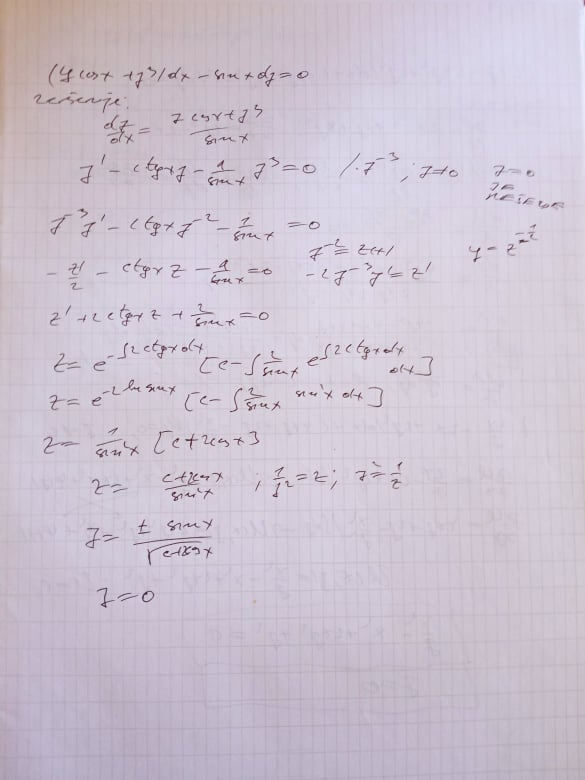 (y cos x + y³)dx - sin x dy = 0
rešenje:
dy/dx = (y cos x + y³)/sin x
y' - ctgx y - 1/sin x y³ = 0 /· y⁻³ ; y≠0 y=0
JE
REŠENJE
y⁻³y' - ctgx y⁻² - 1/sin x = 0
y⁻² = z(x) y = z^(-1/2)
-z'/2 - ctgx z - 1/sin x = 0 -2y⁻³y' = z'
z' + 2ctgx z + 2/sin x = 0
z = e^(-∫2ctgxdx) [c - ∫ 2/sin x e^(∫2ctgxdx) dx]
z = e^(-2 ln sin x) [c - ∫ 2/sin x sin²x dx]
z = 1/sin²x [c + 2cos x]
z = (c + 2cos x)/sin²x ; 1/y² = z ; y² = 1/z
y = ± sin x/√(c+2cos x)
y = 0